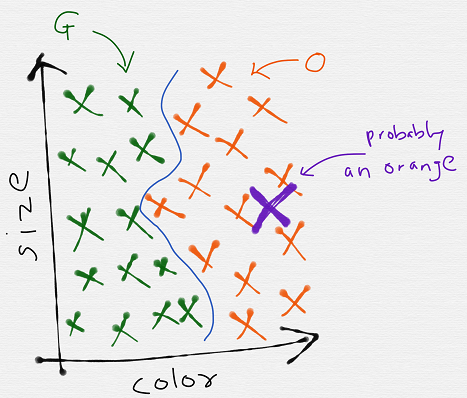 G
O
probably
an orange
size
color